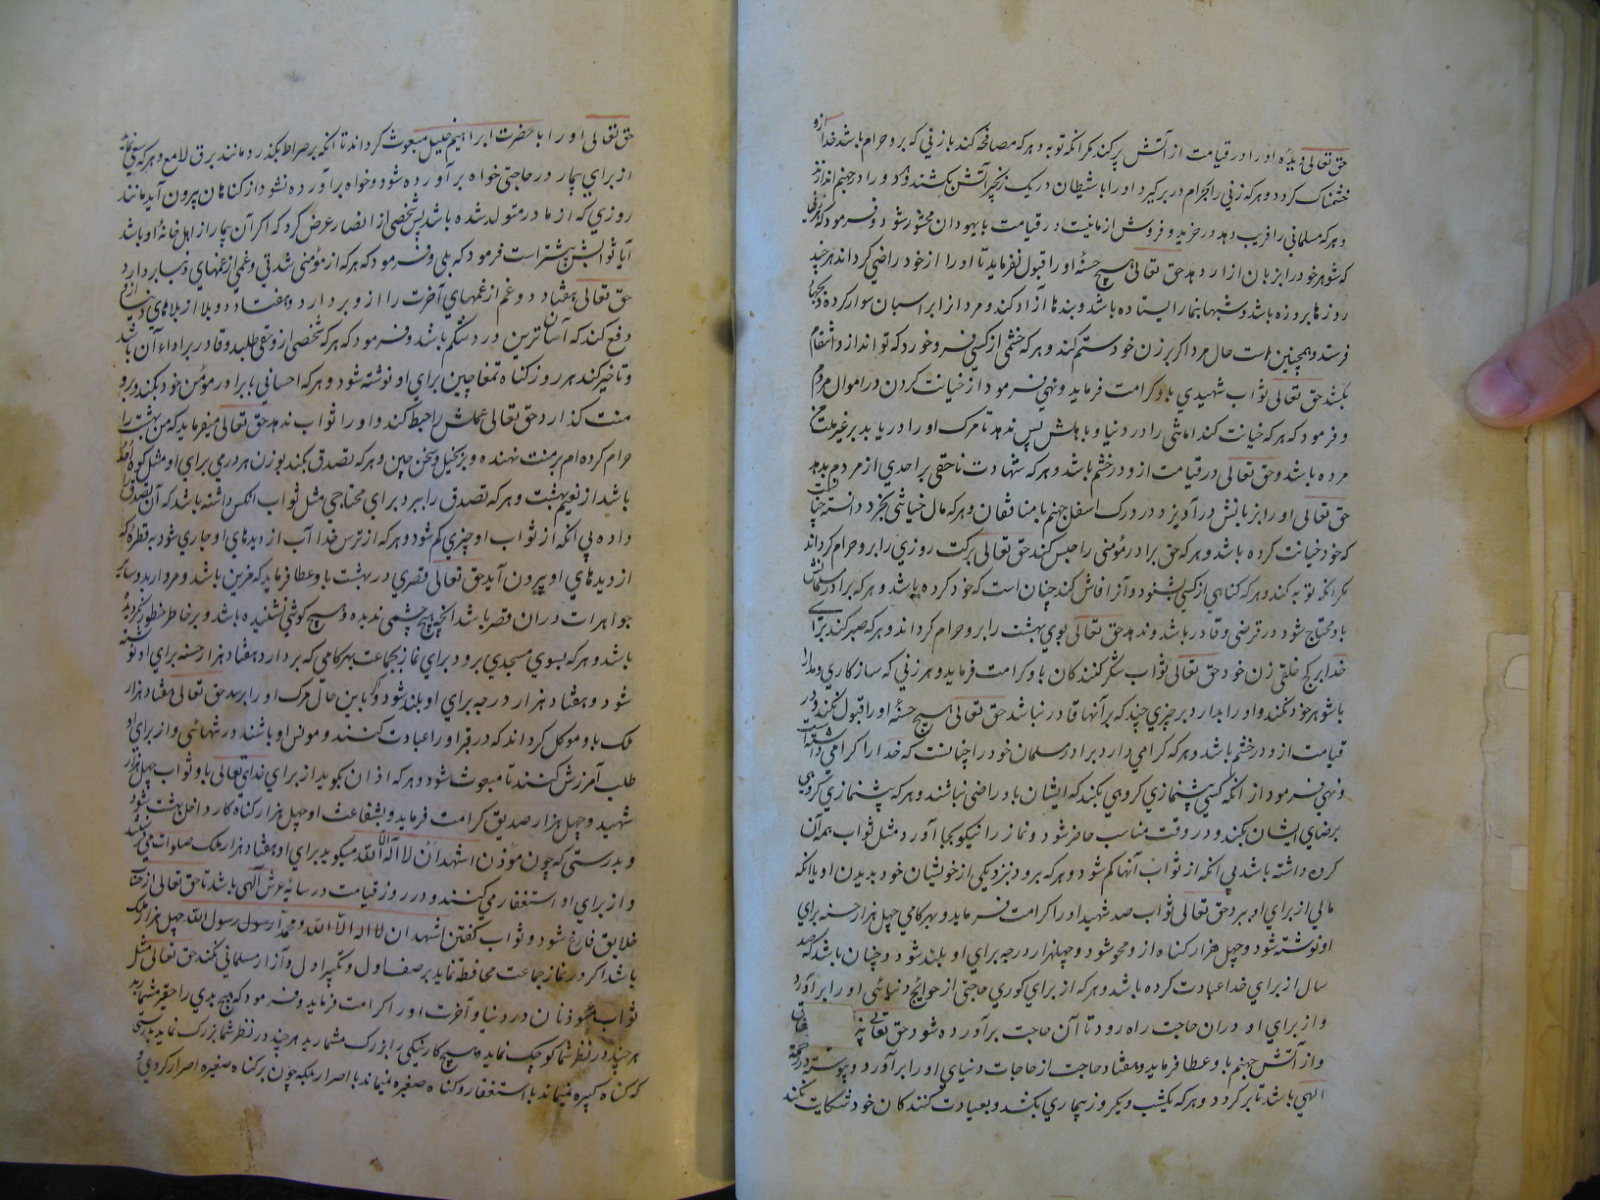 حق تعالی دیدهٔ او را در قیامت از آتش پر کند مکر انکه توبه و هرکه مصافحه کند با زنی که برو حرام باشد خدا ازو
خشمناک کردد و هرکه زنی را بحرام در بر کیرد او را با شیطان در یک زنجیر آتش بکشند و او را در جهنم اندازند
و هرکه مسلمانی را فریب دهد در خرید و فروش از ما نیست در قیامت با یهودان محشور شود و فرمود که هر زنی
که شوهر خود را بزبان ازار دهد حق تعالی هیچ حسنهٔ او را قبول نفرماید تا او را از خود راضی کرداند هرچند
روزها بروزه باشد و شبها بنماز ایستاده باشد و بندها آزاد کند و مردم را بر اسبان سوار کرده بجهاد
فرستد و همچنین است حال مرد اکر بر زن خود ستم کند و هرکه خشمی از کسی فرو خورد که تواند از و انتقام
بکشد حق تعالی ثواب شهیدی باو کرامت فرماید و نهی فرمود از خیانت کردن در اموال مردم
و فرمود که هرکه خیانت کند امانتی را در دنیا و باهلش پس ندهد تا مرک او را دریابد بر غیر ملت من
مرده باشد و حق تعالی در قیامت ازو در خشم باشد و هرکه شهادت ناحقی بر احدی از مردم بدهد
حق تعالی او را بزبانش درآویزد در درک اسفل جهنم با منافقان و هرکه مال خیانتی بخرد دانسته چنانست
که خود خیانت کرده باشد و هرکه حق برادر مؤمنی را حبس کند حق تعالی برکت روزی را برو حرام کرداند
مکر انکه توبه کند و هرکه کناهی از کسی بشنود و آنرا فاش کند چنان است که خود کرده باشد و هرکه برادر مسلمانش
باو محتاج شود در قرضی و قادر باشد و ندهد حق تعالی بوی بهشت را برو حرام کرداند و هرکه صبر کند برای
خدا بر کج خلقی زن خود حق تعالی ثواب شکر کنندکان باو کرامت فرماید و هر زنی که سازکاری و مدارا
با شوهر خود نکند و او را بدارد بر چیزی چند که بر آنها قادر نباشد حق تعالی هیچ حسنهٔ او را قبول نکند و در
قیامت ازو در خشم باشد و هرکه کرامی دارد برادر مسلمان خود را چنانست که خدا را کرامی داشته است
و نهی فرمود از انکه کسی پیشنمازی کروهی بکند که ایشان باو راضی نباشند و هرکه پیشنمازی کروهی
برضای ایشان بکند و در وقت مناسب حاضر شود و نماز را نیکو بجا آورد مثل ثواب همه آن
کرده داشته باشد بی انکه از ثواب آنها کم شود و هرکه برود بنزدیکی از خویشان خود بدیدن او یا انکه
مالی از برای او ببرد حق تعالی ثواب صد شهید او را کرامت فرماید و بهر کامی چهل هزار حسنه برای
او نوشته شود و چهل هزار کناه از و محو شود و چهل هزار درجه برای او بلند شود و چنان باشد که صد
سال از برای خدا عبادت کرده باشد و هرکه از برای کوری حاجتی از حوایج دنیائی او را برآورد
و از برای او دران حاجت راه رود تا آن حاجت برآورده شود حق تعالی
و از آتش جهنم باو عطا فرماید و هفتاد حاجت از حاجات دنیای او را برآورد و پیوسته در رحمت
الهی باشد تا برکردد و هرکه یکشب و یکروز بیماری بکشد و بعیادت کنندکان خود شکایت نکند
حق تعالی او را با حضرت ابراهیم خلیل مبعوث کرداند تا انکه بر صراط بکذرد مانند برق لامع و هرکه سعی نماید
از برای بیمار در حاجتی خواه برآورده شود و خواه برآورده نشود از کناهان بیرون آید مانند
روزی که از مادر متولد شده باشد پس شخصی از انصار عرض کرد که اکر آن بیمار از اهل خانهٔ او باشد
آیا ثوابش بیشتر است فرمود که بلی و فرمود که هرکه از مؤمنی شدتی و غمی از غمهای دنیا بردارد
حق تعالی هفتاد و دو غم از غمهای آخرت را از و بردارد و هفتاد و دو بلا از بلاهای دنیا ازو
دفع کند که آسان ترین درد شکم باشد و فرمود که هرکه شخصی از و حقی طلبد و قادر بر اداء آن باشد
و تاخیر کند هر روز کناه تمغاچیئن برای او نوشته شود و هرکه احسانی ببرادر مؤمن خود بکند و برو
منت کذارد حق تعالی عملش را حبط کند و او را ثواب ندهد حق تعالی میفرماید که من بهشت را
حرام کرده ام بر منت نهنده و بر بخیل و سخن چین و هرکه تصدق بکند بوزن هر درمی برای او مثل کوه احد
باشد از نعیم بهشت و هرکه تصدق را ببرد برای محتاجی مثل ثواب انکس داشته باشد که آن تصدق را
داده بی انکه از ثواب او چیزی کم شود و هرکه از ترس خدا آب از دیدهای او جاری شود به هر قطرهٔ که
از دیدهای او بیرون آید حق تعالی قصری در بهشت باو عطا فرماید که مزین باشد و مروارید و سایر
جواهرات دران قصر باشد انچه هیچ چشمی ندیده و هیچ کوشی نشنیده باشد و بر خاطر خطور نکرده
باشد و هرکه بسوی مسجدی برود برای نماز بجماعت بهر کامی که بردارد هفتاد هزار حسنه برای او نوشته
شود و هفتاد هزار درجه برای او بلند شود و اکر باین حال مرک او را برسد حق تعالی هفتاد هزار
ملک باو موکل کرداند که در قبر او را عیادت کنند و مونس او باشند در تنهائی و از برای او
طلب آمرزش کنند تا مبعوث شود و هرکه اذان بکوید از برای خدای تعالی باو ثواب چهل هزار
شهید و چهل هزار صدیق کرامت فرماید و بشفاعت او چهل هزار کناه کار داخل بهشت شود
و بدرستی که چون مؤذن اشهد ان لا اله الا الله میکوید برای او هفتاد هزار ملک صلوات میفرستند
و از برای او استغفار می کنند و در روز قیامت در سایهٔ عرش الهی باشد تا حق تعالی از حساب
خلایق فارغ شود و ثواب کفتن اشهد ان لا اله الا الله و محمدا رسول رسول الله چهل هزار ملک
باشد اکر در نماز جماعت محافظه نماید بر صف اول و تکبیر اول و آزار مسلمانی نکند حق تعالی مثل
ثواب مؤذنان در دنیا و آخرت او را کرامت فرماید و فرمود که هیچ بدی را حقیر مشمارید
هرچند در نظر شما کوچک نماید و هیچ کار نیکی را بزرک مشمارید هرچند در نظر شما بزرک نماید بدرستی
که کناه کبیره نمیماند با استغفار و کناه صغیره نمیماند با اصرار بلکه چون بر کناه صغیره اصرار کردی